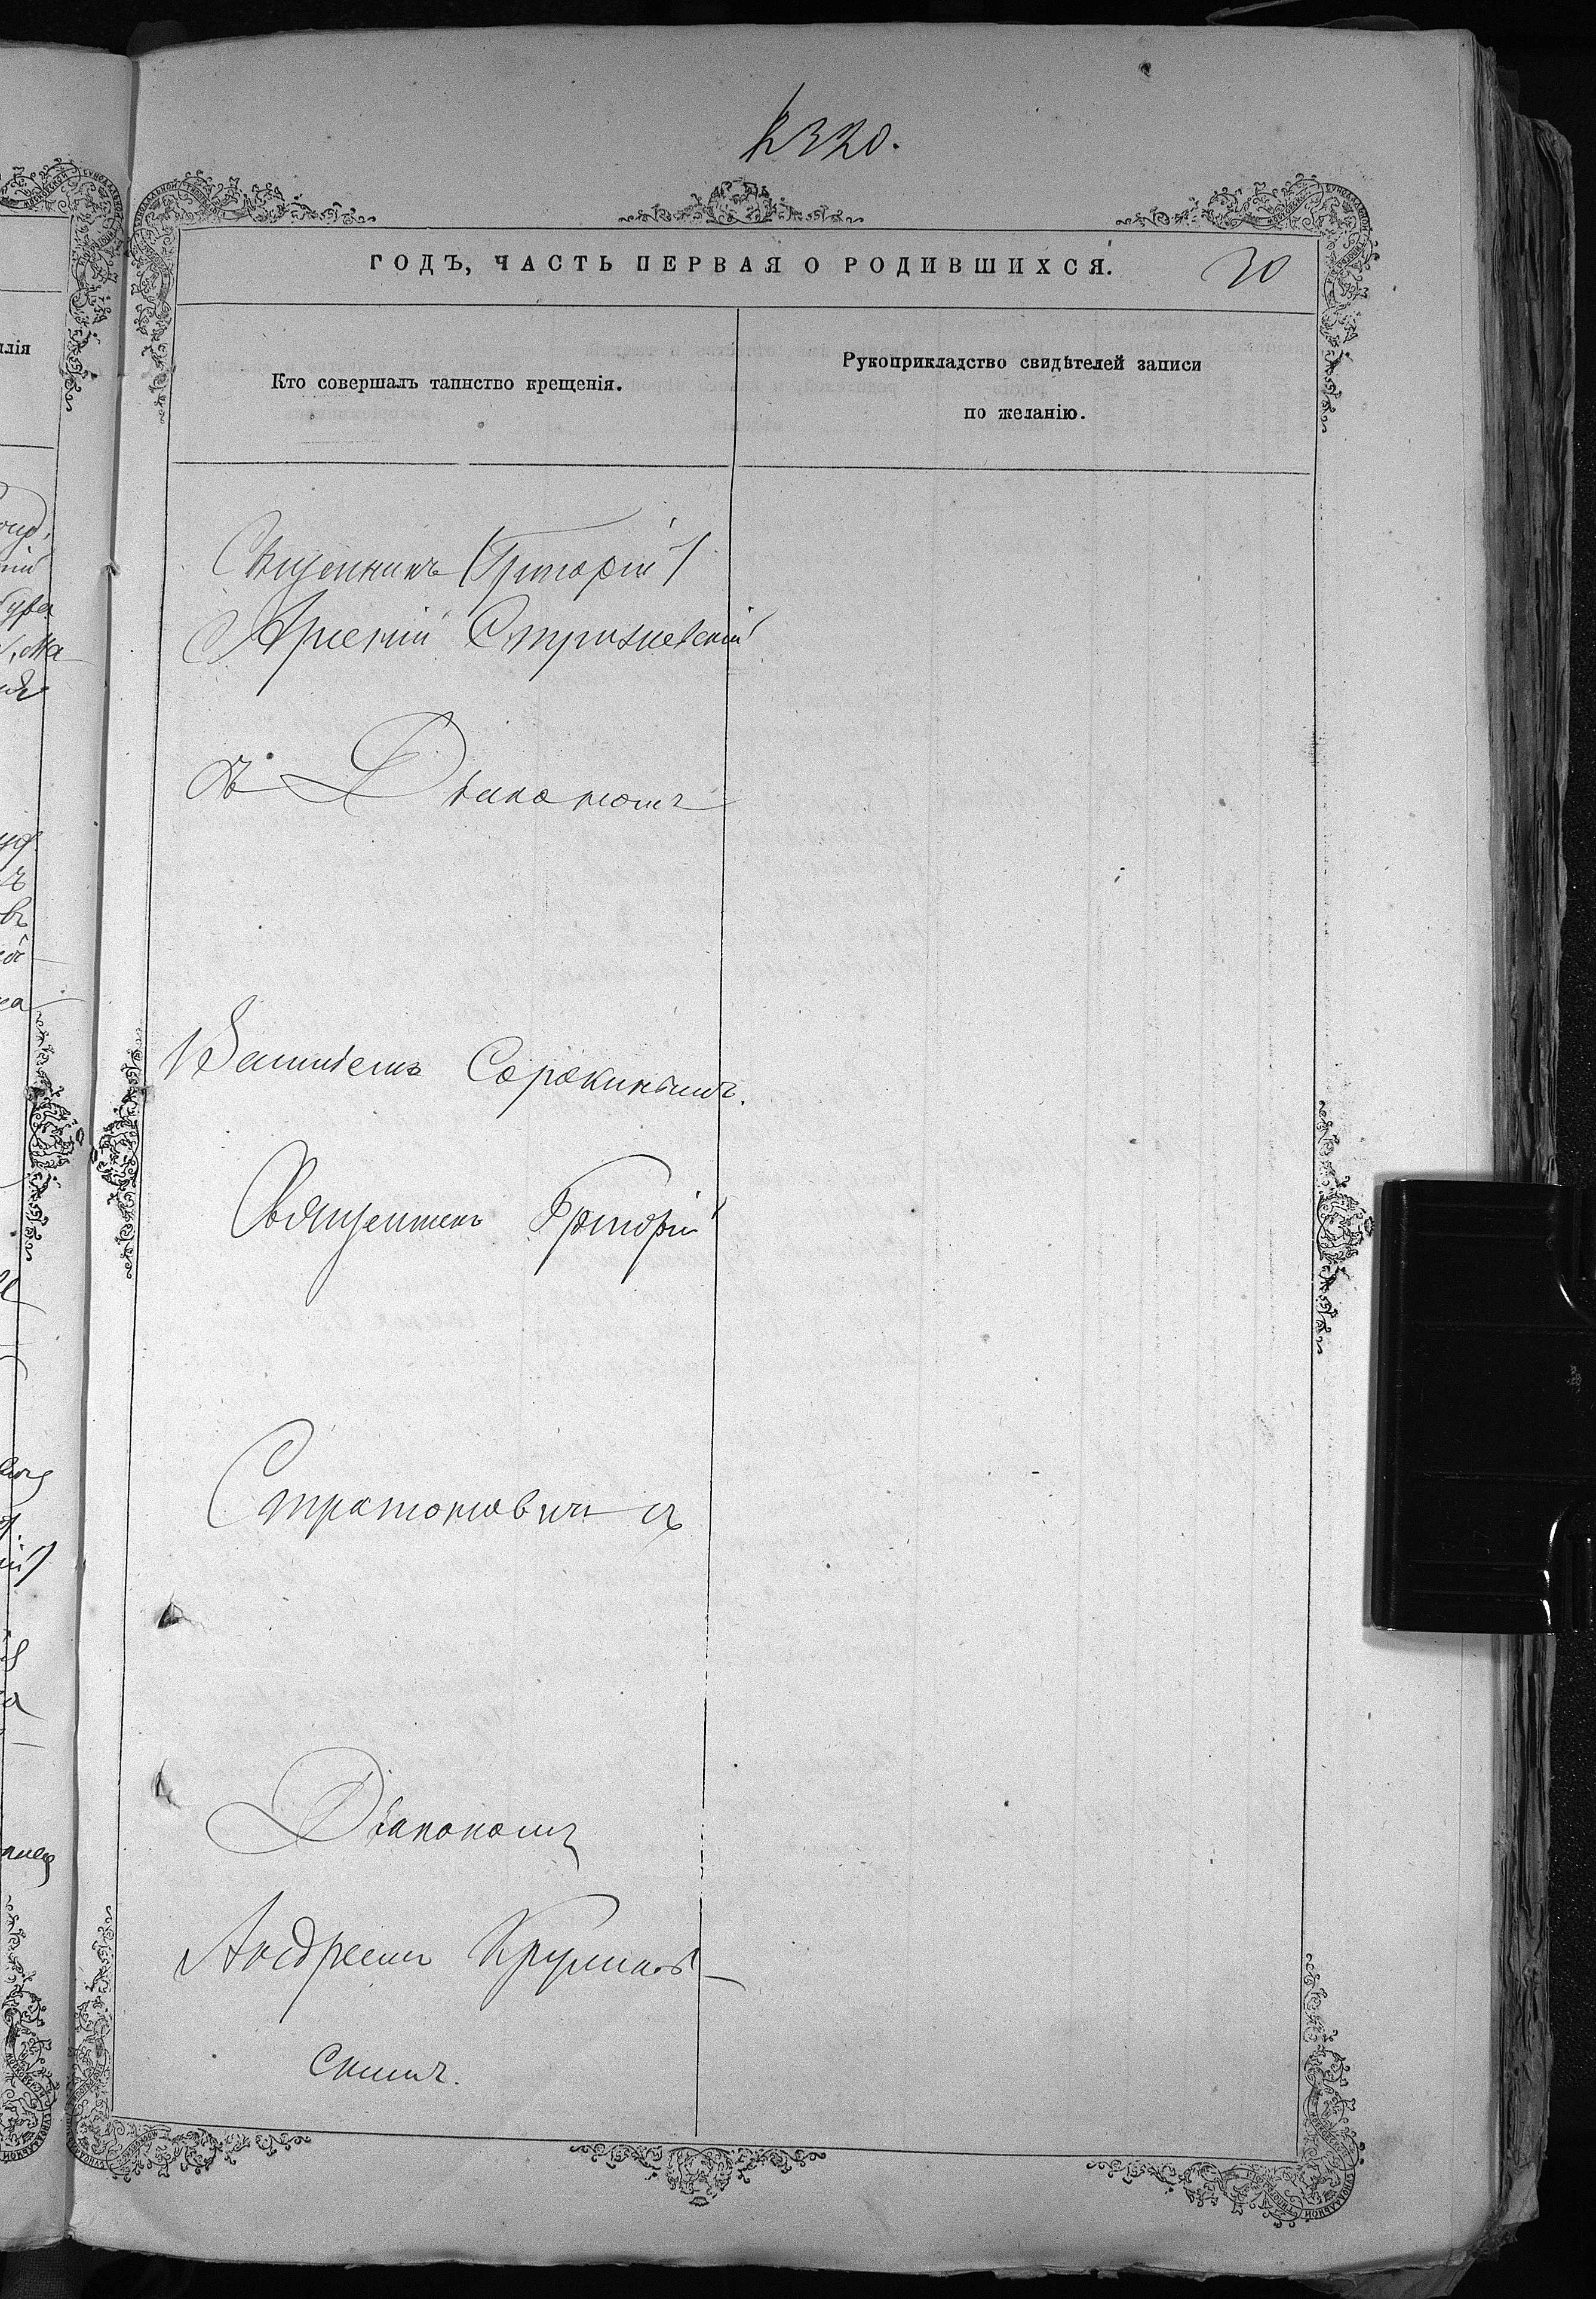 2320.
ГОДЪ, ЧАСТЬ ПЕРВАЯ О РОДИВШИХСЯ.
30
Кто совершалъ таинство крещенія.
Рукоприкладство свидѣтелей записи
по желанію.
Священникъ Григорій
Арсеній
съ Діакономъ
Василіемъ Сорокинымъ.
Священникъ Григорій
Стратоновичъ съ
Діакономъ
Андреемъ
скимъ.